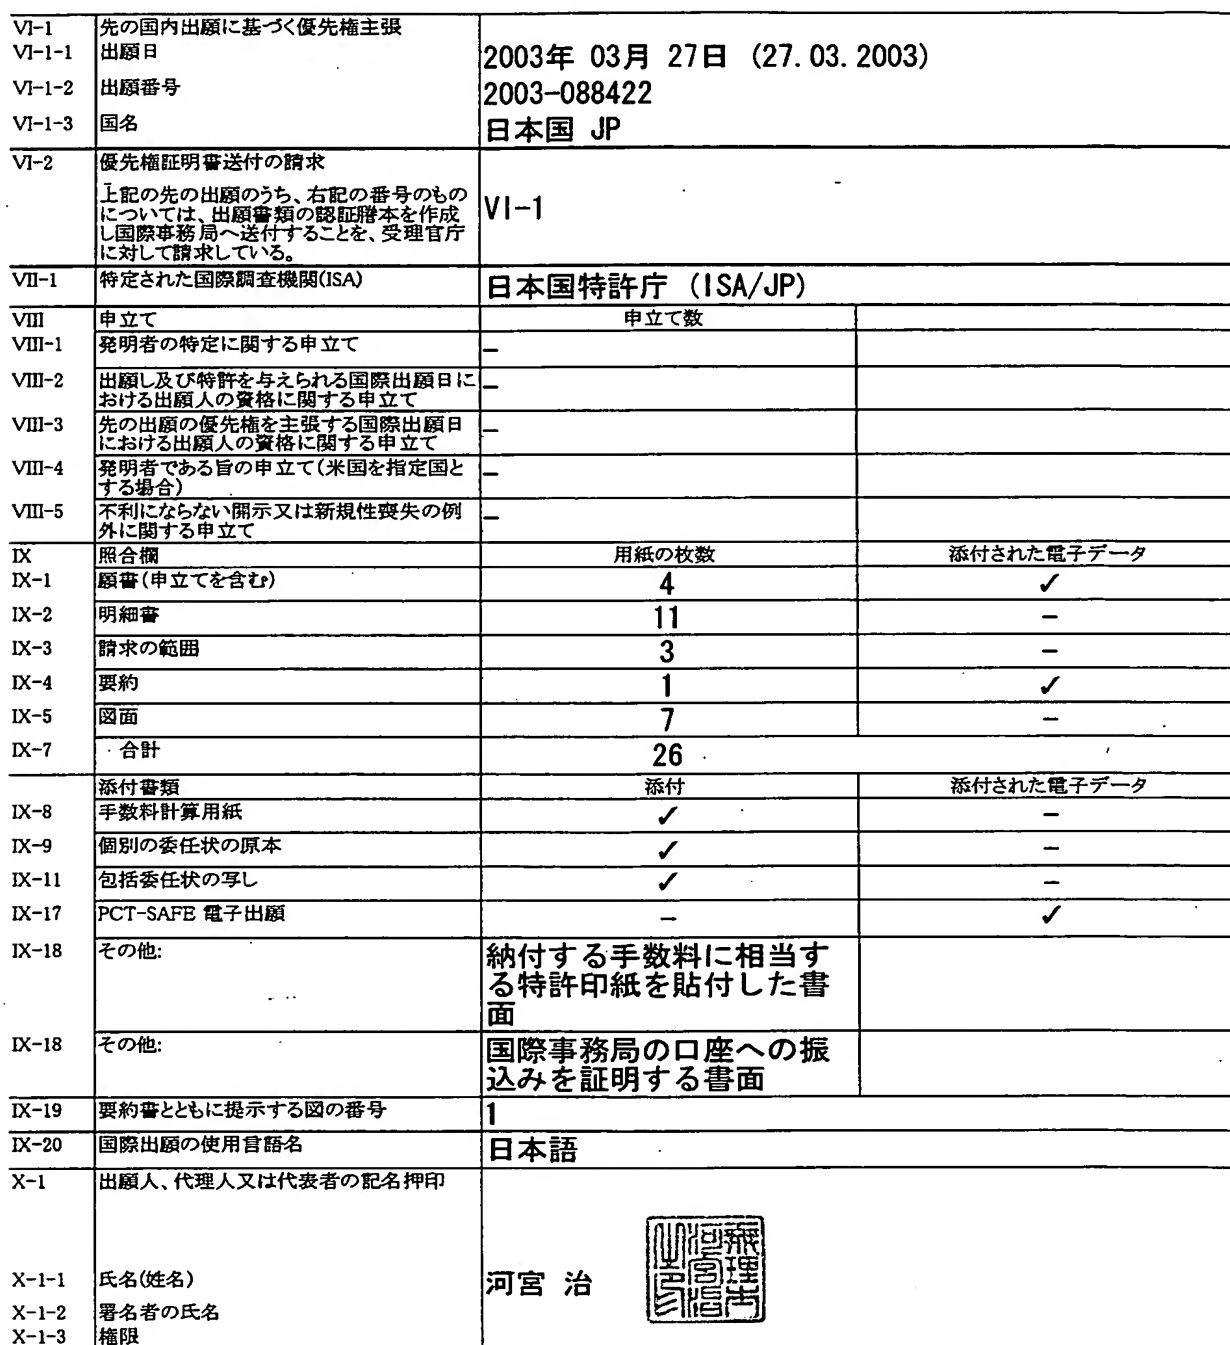 VI-1 先の国内出願に基づく優先権主張
VI-1-1 出願日 2003年 03月 27日 (27.03.2003)
VI-1-2 出願番号 2003-088422
VI-1-3 国名 日本国 JP
VI-2 優先権証明書送付の請求
上記の先の出願のうち、右記の番号のもの
については、出願書類の認証謄本を作成
し国際事務局へ送付することを、受理官庁
に対して請求している。
VI-1
VII-1 特定された国際調査機関(ISA) 日本国特許庁 (ISA/JP)
VIII 申立て 申立て数
VIII-1 発明者の特定に関する申立て –
VIII-2 出願し及び特許を与えられる国際出願日に –
おける出願人の資格に関する申立て
VIII-3 先の出願の優先権を主張する国際出願日 –
における出願人の資格に関する申立て
VIII-4 発明者である旨の申立て(米国を指定国と –
する場合)
VIII-5 不利にならない開示又は新規性喪失の例 –
外に関する申立て
IX 照合欄 用紙の枚数 添付された電子データ
IX-1 願書(申立てを含む) 4 ✓
IX-2 明細書 11 –
IX-3 請求の範囲 3 –
IX-4 要約 1 ✓
IX-5 図面 7 –
IX-7 合計 26
添付書類 添付 添付された電子データ
IX-8 手数料計算用紙 ✓ –
IX-9 個別の委任状の原本 ✓ –
IX-11 包括委任状の写し ✓ –
IX-17 PCT-SAFE 電子出願 – ✓
IX-18 その他: 納付する手数料に相当す
る特許印紙を貼付した書
面
IX-18 その他: 国際事務局の口座への振
込みを証明する書面
IX-19 要約書とともに提示する図の番号 1
IX-20 国際出願の使用言語名 日本語
X-1 出願人、代理人又は代表者の記名押印
X-1-1 氏名(姓名) 河宮 治
X-1-2 署名者の氏名
X-1-3 権限